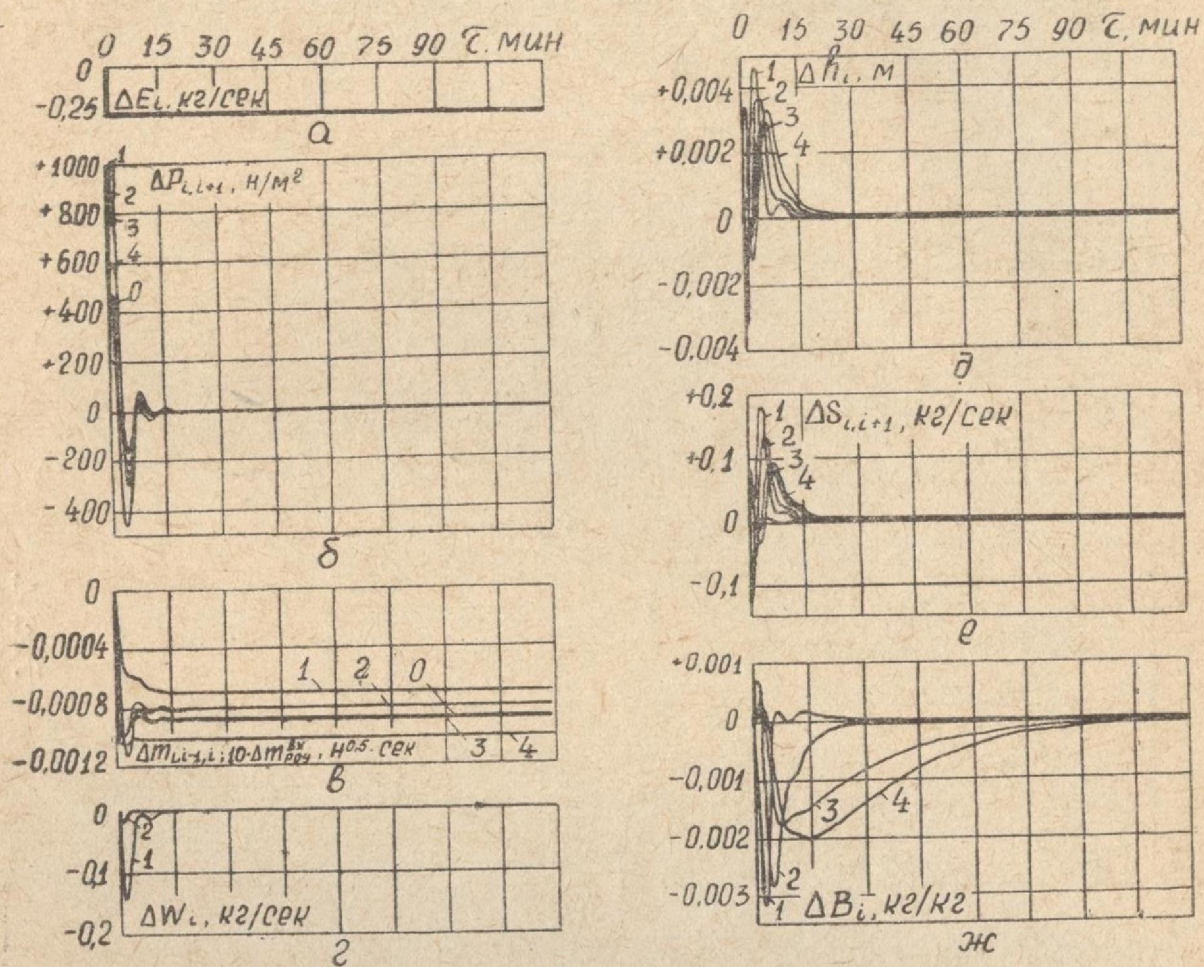 0 15 30 45 60 75 90 τ. мин
0
-0,25
ΔEi, кг/сек
а
+1000
+800
+600
+400
+200
0
-200
-400
ΔPi,i+1, н/м²
1
2
3
4
0
б
0
-0,0004
-0,0008
-0,0012
1 2 0
3 4
в
0
-0,1
-0,2
2
1
ΔWi, кг/сек
г
0 15 30 45 60 75 90 τ, мин
+0,004
+0,002
0
-0,002
-0.004
Δhi, м
1
2
3
4
д
+0,2
+0,1
0
-0,1
ΔSi,i+1, кг/сек
1
2
3
4
е
+0.001
0
-0,001
-0.002
-0.003
3 4
2
1
ΔBi, кг/кг
ж